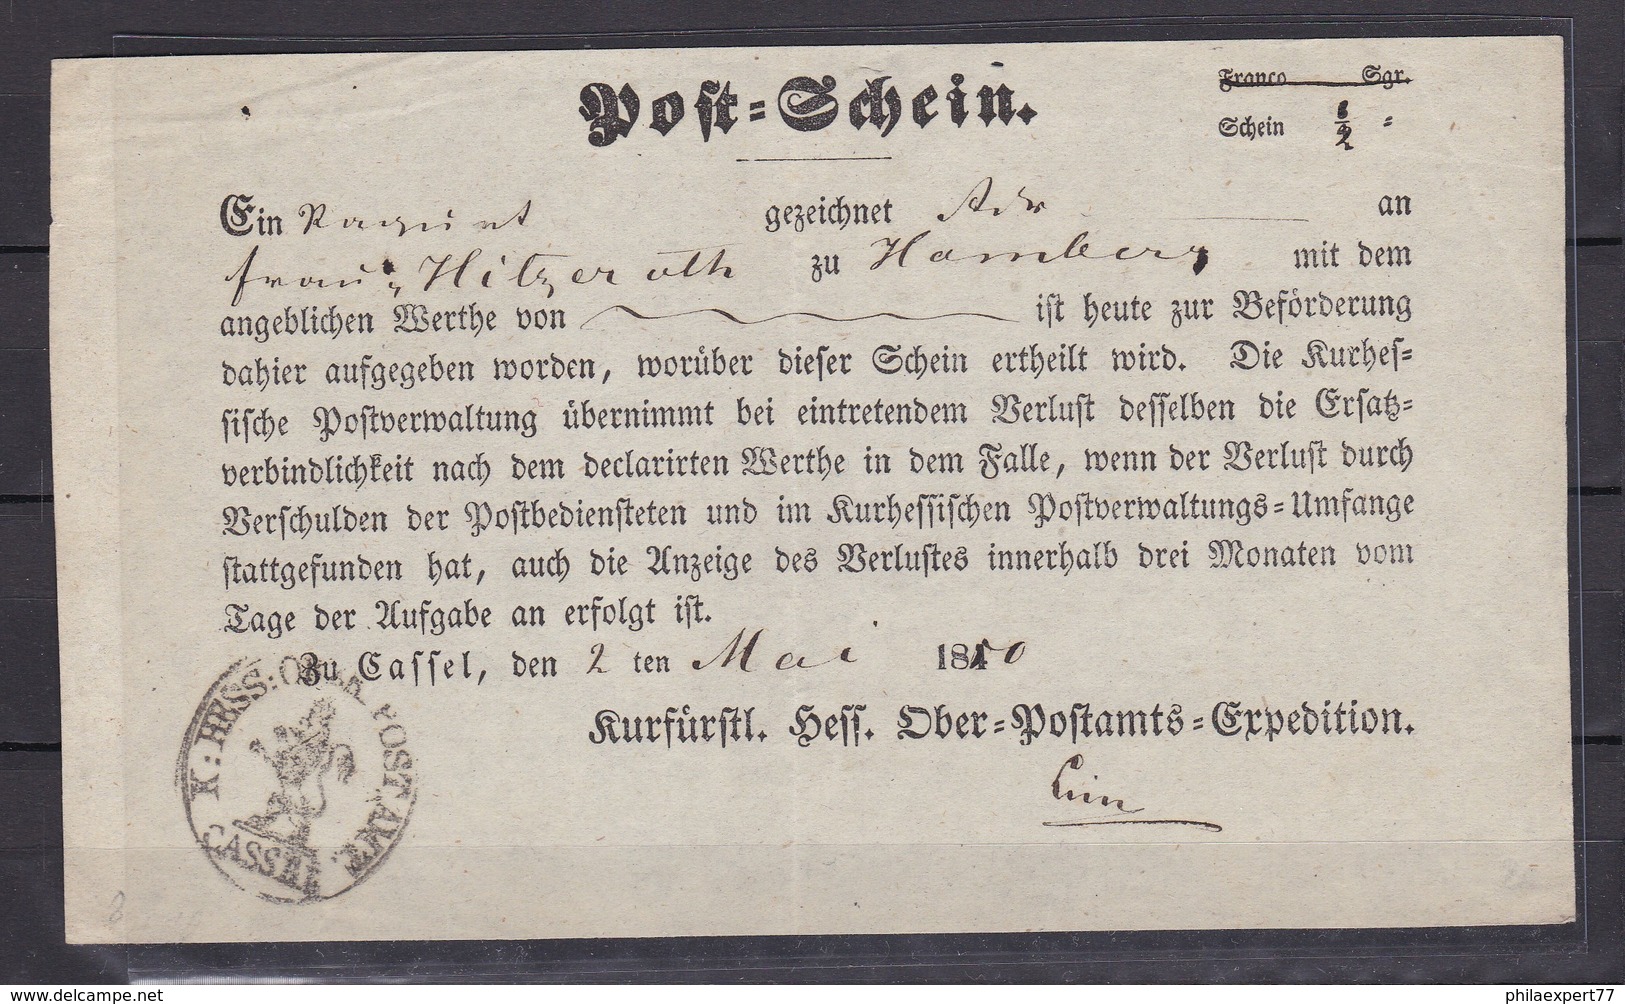 Post-Schein.
Franco Sgr.
Schein ½ "
Ein Paquet gezeichnet Adr an
Frau Hitzeroth zu Homberg mit dem
angeblichen Werthe von ist heute zur Beförderung
dahier aufgegeben worden, worüber dieser Schein ertheilt wird. Die Kurhes-
sische Postverwaltung übernimmt bei eintretendem Verlust desselben die Ersatz-
verbindlichkeit nach dem declarirten Werthe in dem Falle, wenn der Verlust durch
Verschulden der Postbediensteten und im Kurhessischen Postverwaltungs-Umfange
stattgefunden hat, auch die Anzeige des Verlustes innerhalb drei Monaten vom
Tage der Aufgabe an erfolgt ist.
Zu Cassel, den 2 ten Mai 1850
Kurfürstl. Hess. Ober-Postamts-Expedition.
K: HESS: OBER POST AMT.
CASSEL
delcampe.net
philaexpert77